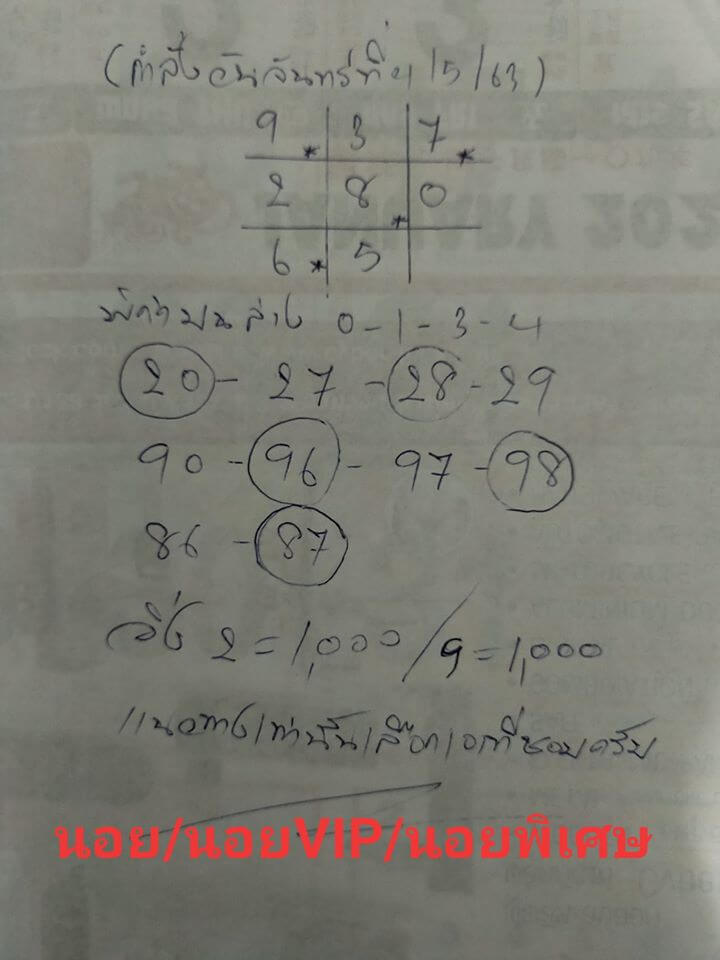 (กำลังวันจันทร์ที่ 4/5/63)
9 3 7
2 8 0
6 5
บนล่าง 0-1-3-4
20 - 27 - 28 - 29
90 - 96 - 97 - 98
86 - 87
วิ่ง 2 = 1,000 / 9 = 1,000
แนวทางเท่านั้นเลือกเอาที่ชอบครับ
นอย/นอยVIP/นอยพิเศษ